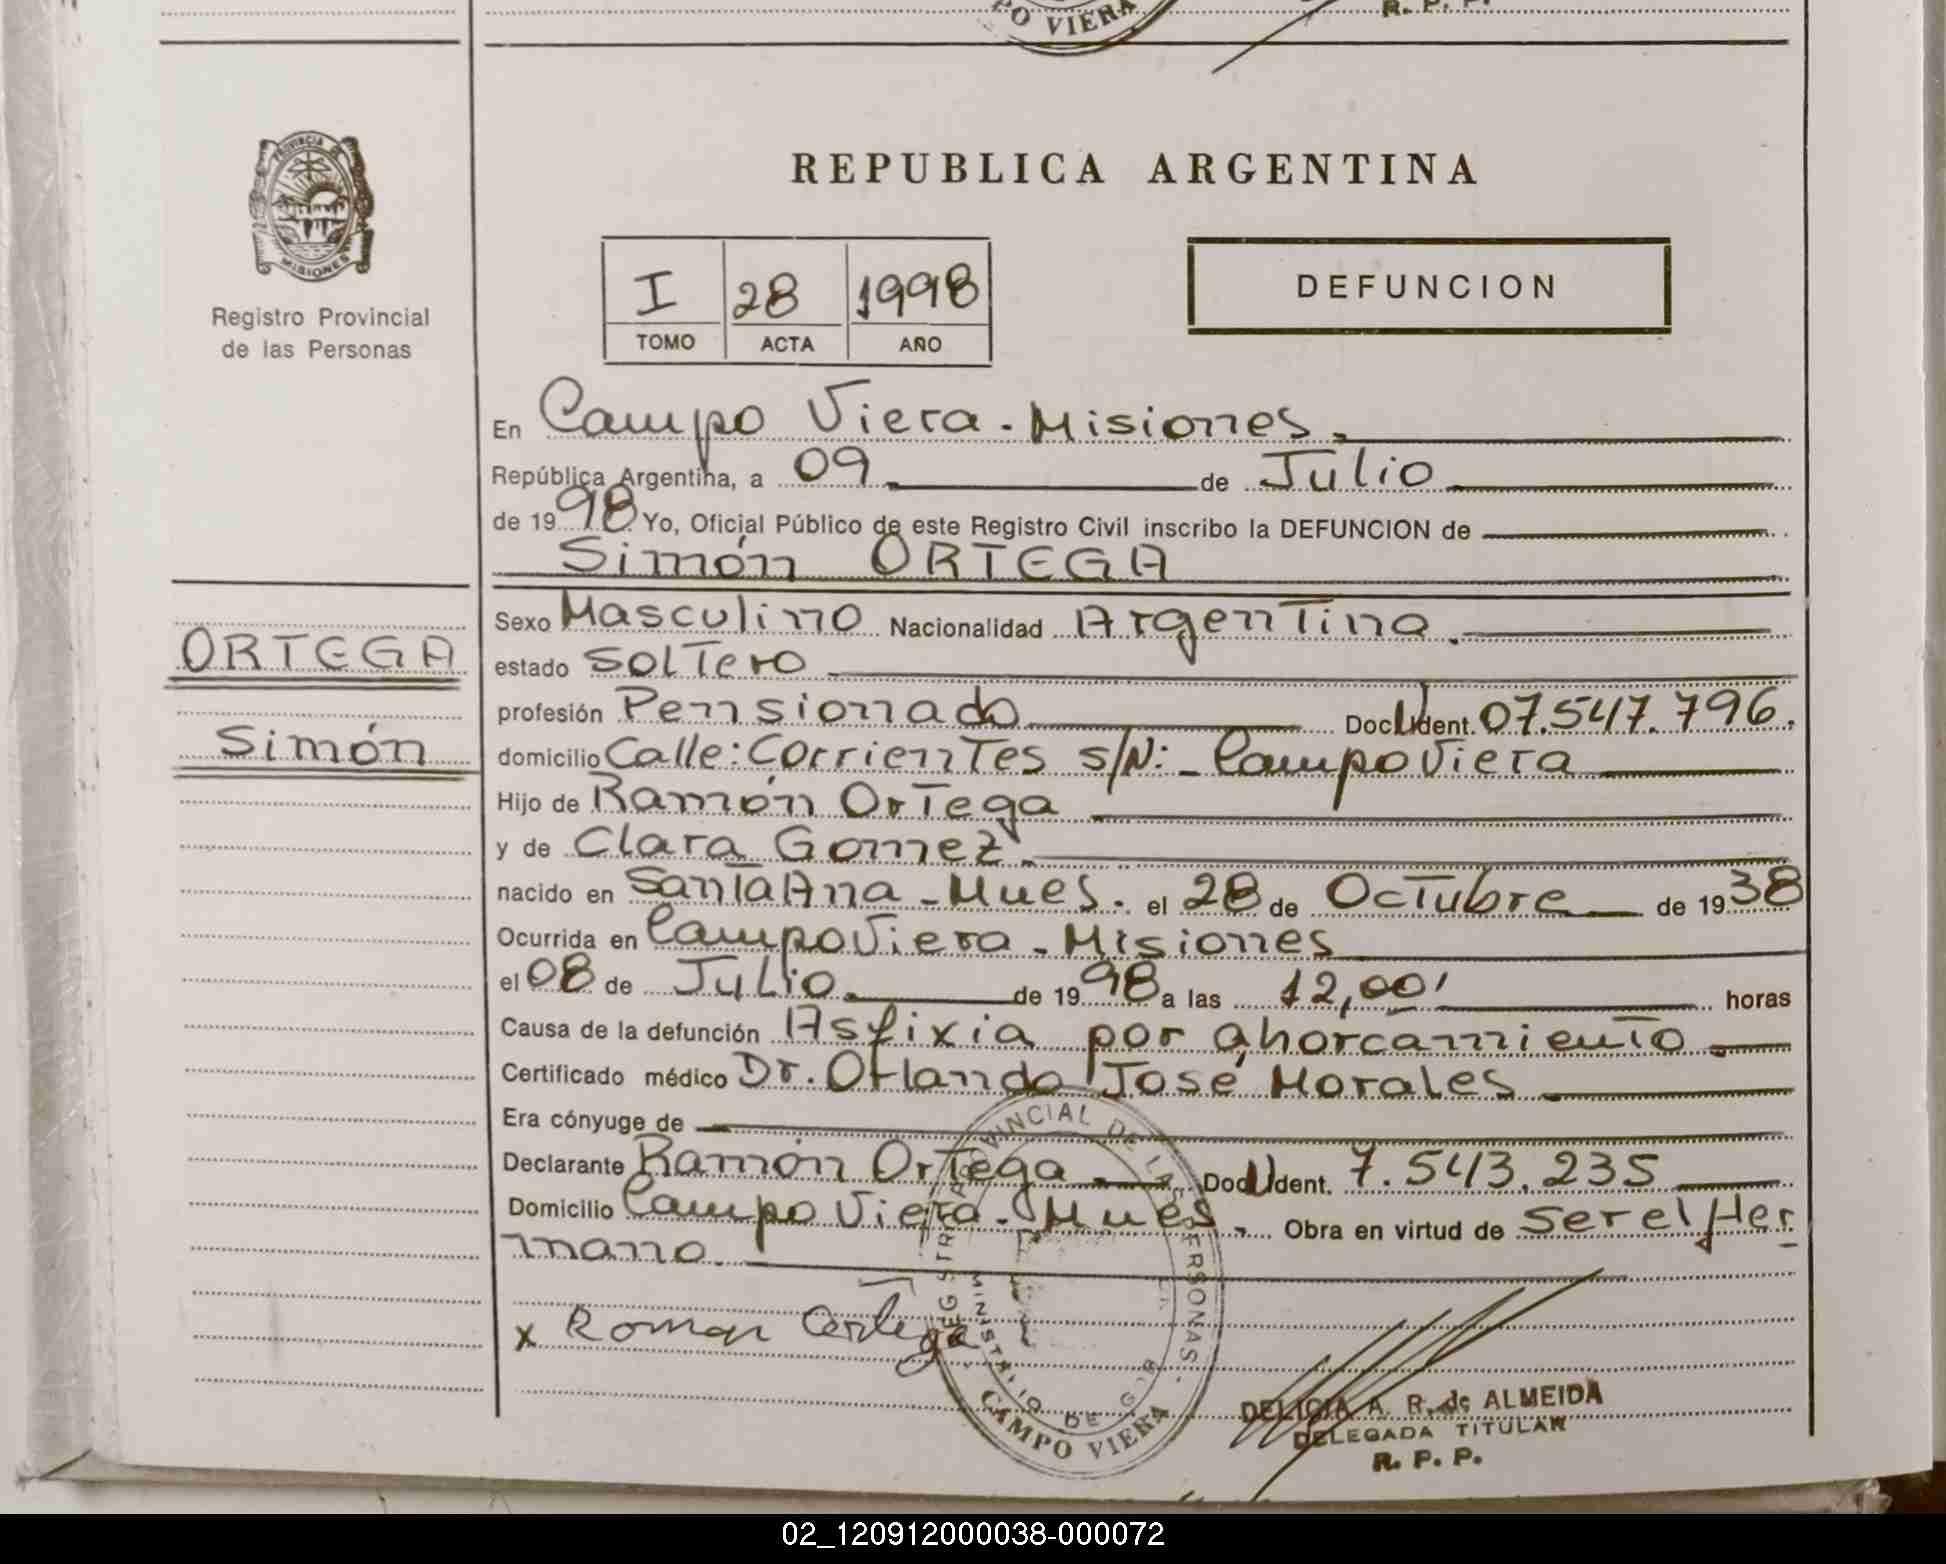 PO VIERA
R. P. P.
PROVINCIA DE
MISIONES
Registro Provincial
de las Personas
REPUBLICA ARGENTINA
I 28 1998
TOMO ACTA AÑO
DEFUNCION
En Campo Viera - Misiones.
República Argentina, a 09 de Julio
de 1998 Yo, Oficial Público de este Registro Civil inscribo la DEFUNCION de
Simón ORTEGA
ORTEGA
Simón
Sexo Masculino Nacionalidad Argentina.
estado Soltero
profesión Pensionado Doc. Ident. 07.547.796.
domicilio Calle: Corrientes s/N: - Campo Viera
Hijo de Ramón Ortega
y de Clara Gomez.
nacido en Santa Ana - Mnes. el 28 de Octubre de 1938
Ocurrida en Campo Viera - Misiones
el 08 de Julio. de 1998 a las 12,00' horas
Causa de la defunción Asfixia por ahorcamiento.
Certificado médico Dr. Orlando José Morales
Era cónyuge de
Declarante Ramón Ortega Doc. Ident. 7.543.235
Domicilio Campo Viera - Mnes. Obra en virtud de Ser el Her
mano.
x Roman Ortega
REGISTRO PROVINCIAL DE LAS PERSONAS
MINISTERIO DE GOB
CAMPO VIERA
DELICIA A. R. de ALMEIDA
DELEGADA TITULAR
R. P. P.
02_120912000038-000072